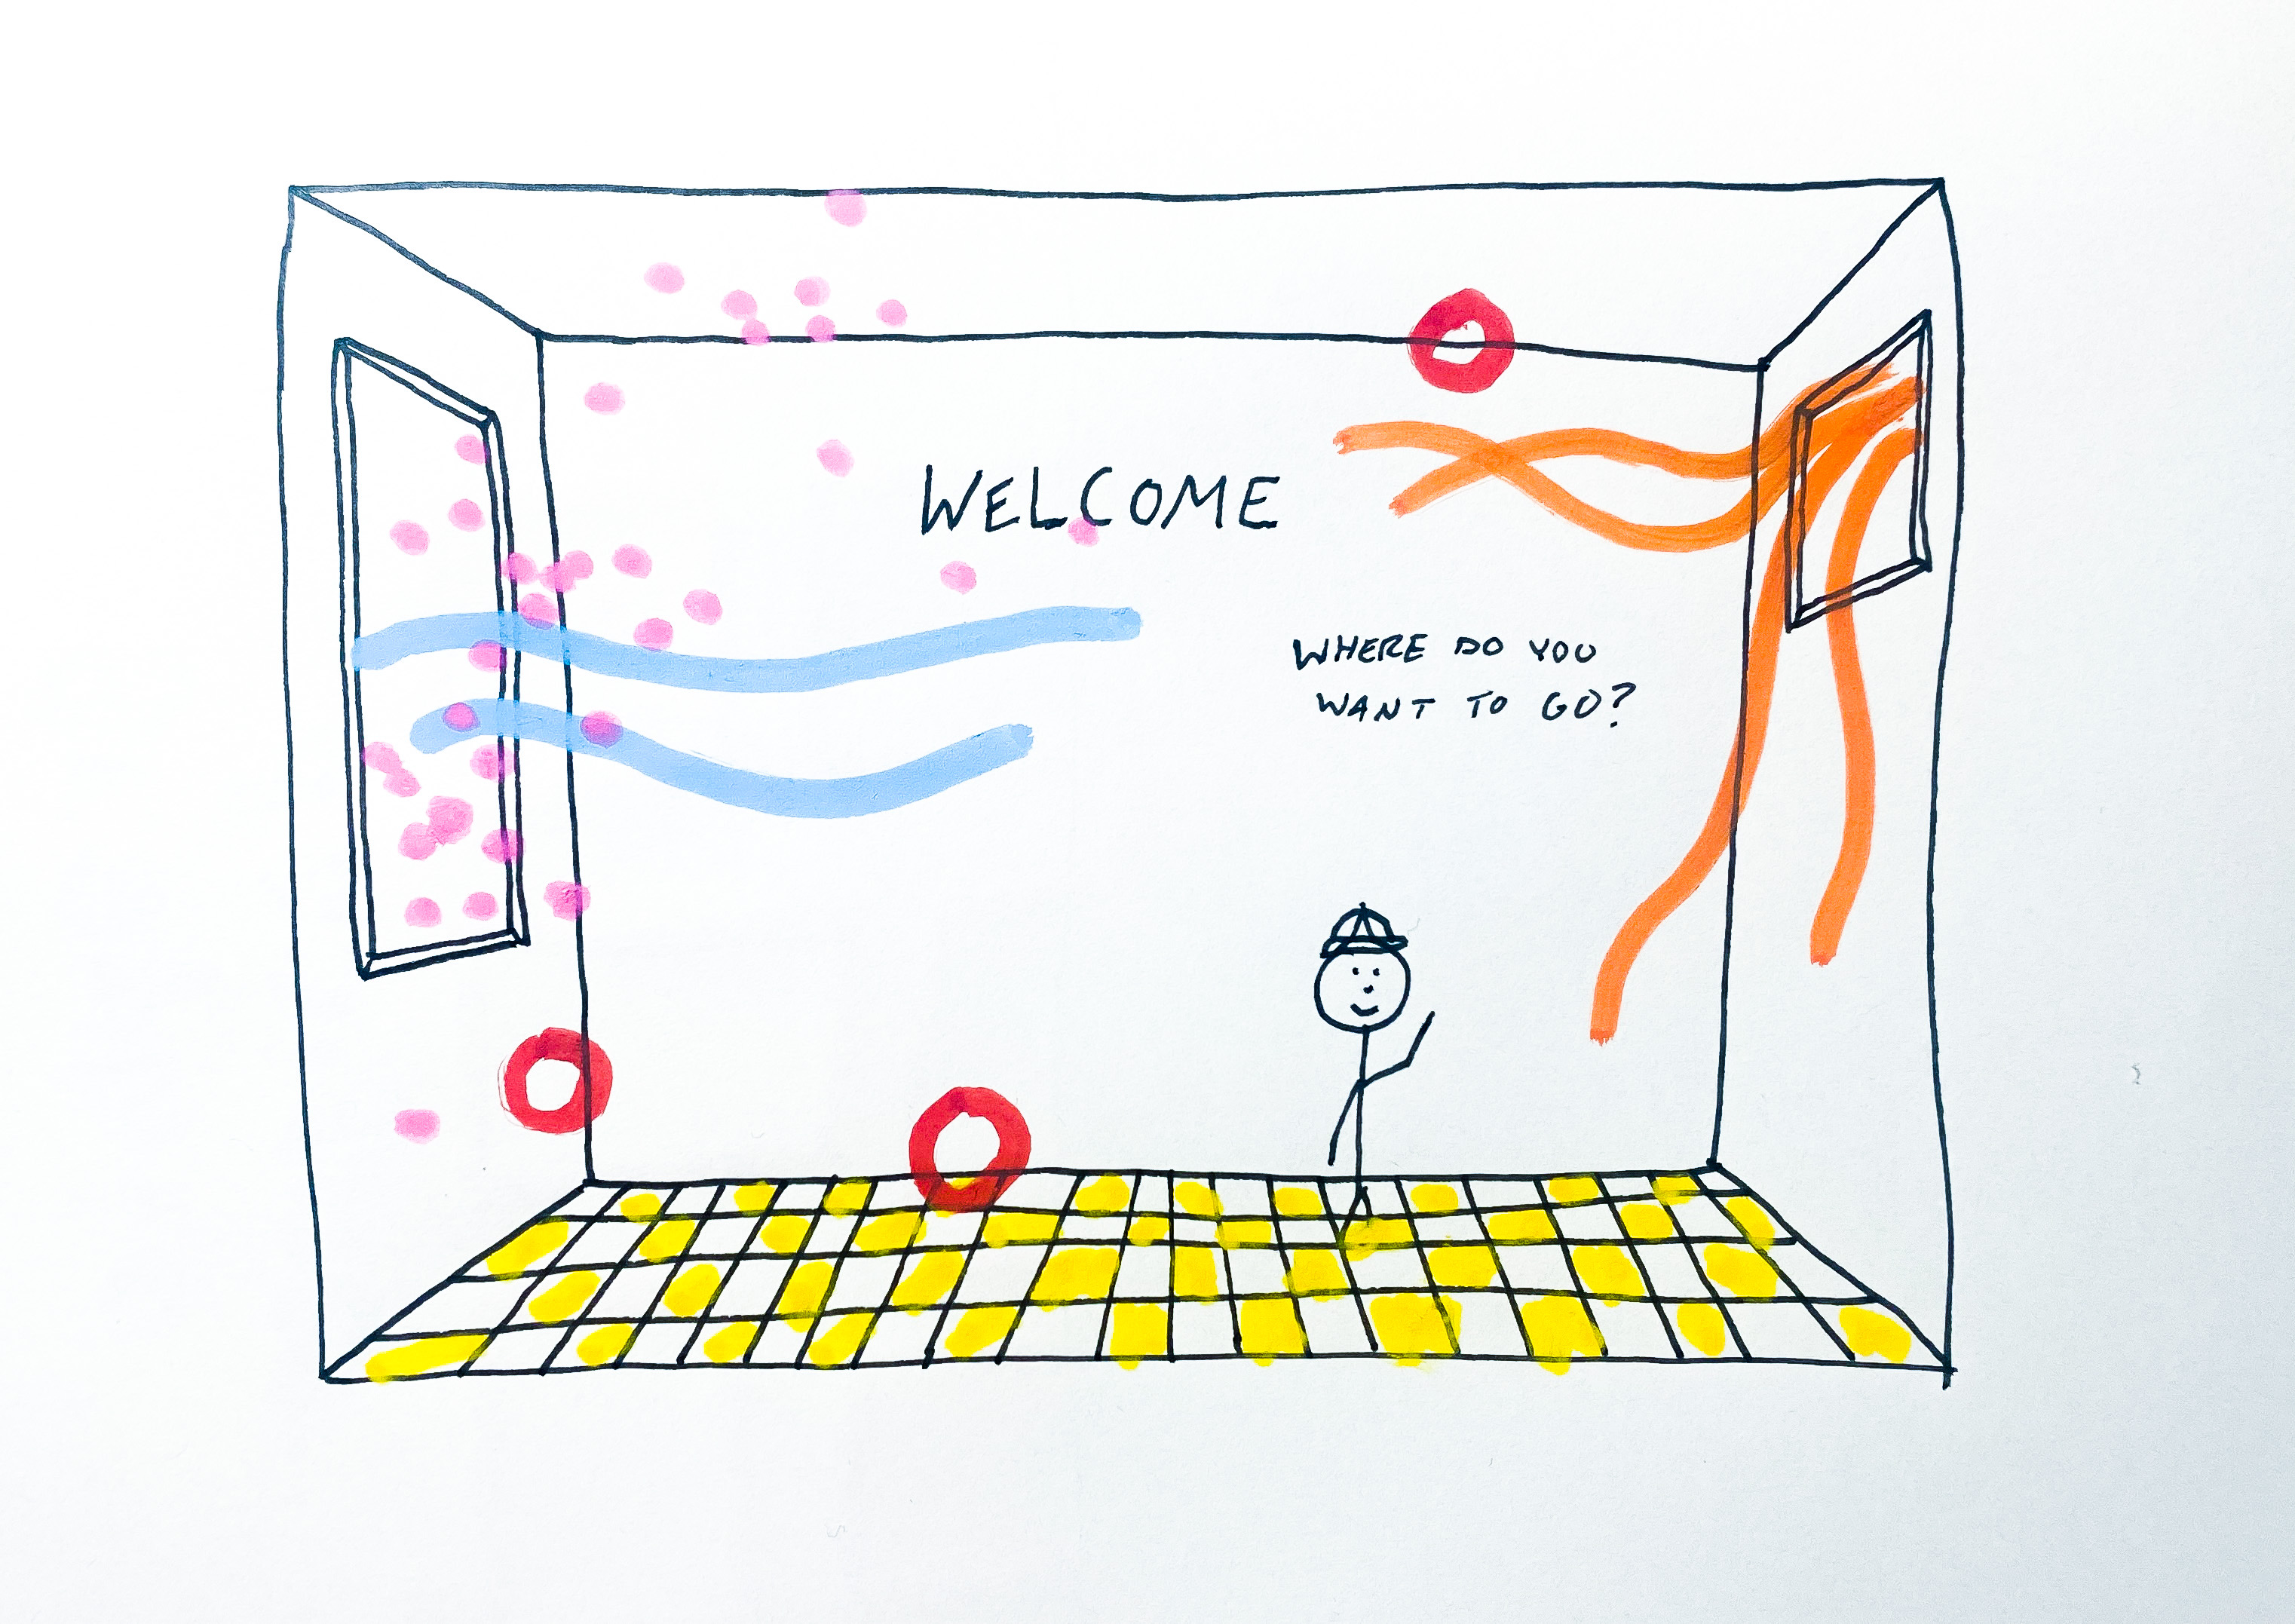 WELCOME
WHERE DO YOU
WANT TO GO?